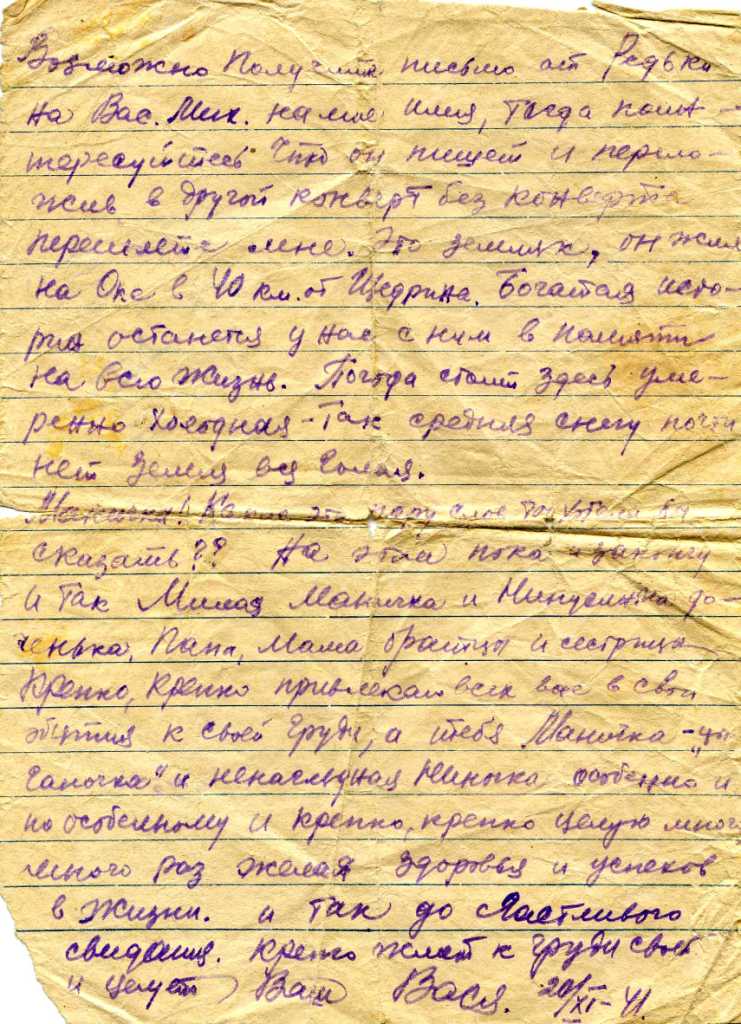 Возможно Получите письмо от Редьки
на Вас. Мих. на мое имя, тогда поин-
тересуйтесь Что он пишет и перело-
жив в другой конверт без конверта
перешлете мне. Это земляк, он жил
на Оке в 40 км. от Щедрина. Богатая исто-
рия останется у нас с ним в памяти
на всю жизнь. Погода стоит здесь уме-
ренно холодная - Так средняя снегу почти
нет земля вся голая.
Манечка! Какие это пару слов ты хотела
сказать?? На этом пока и закончу
и так Милая Маничка и Нинусинька до-
ченька, Папа, Мама братцы и сестрицы
Крепко, Крепко привлекаю всех вас в свои
объятия к своей груди, а тебя Маничка - "цы
ганочка" и ненаглядная Ниночка особенно и
по особенному и крепко, крепко целую много
много раз желая здоровья и успехов
в жизни. и так до счастливого
свидания. крепко жмет к груди своей
и целует Ваш Вася. 20/XI-41.